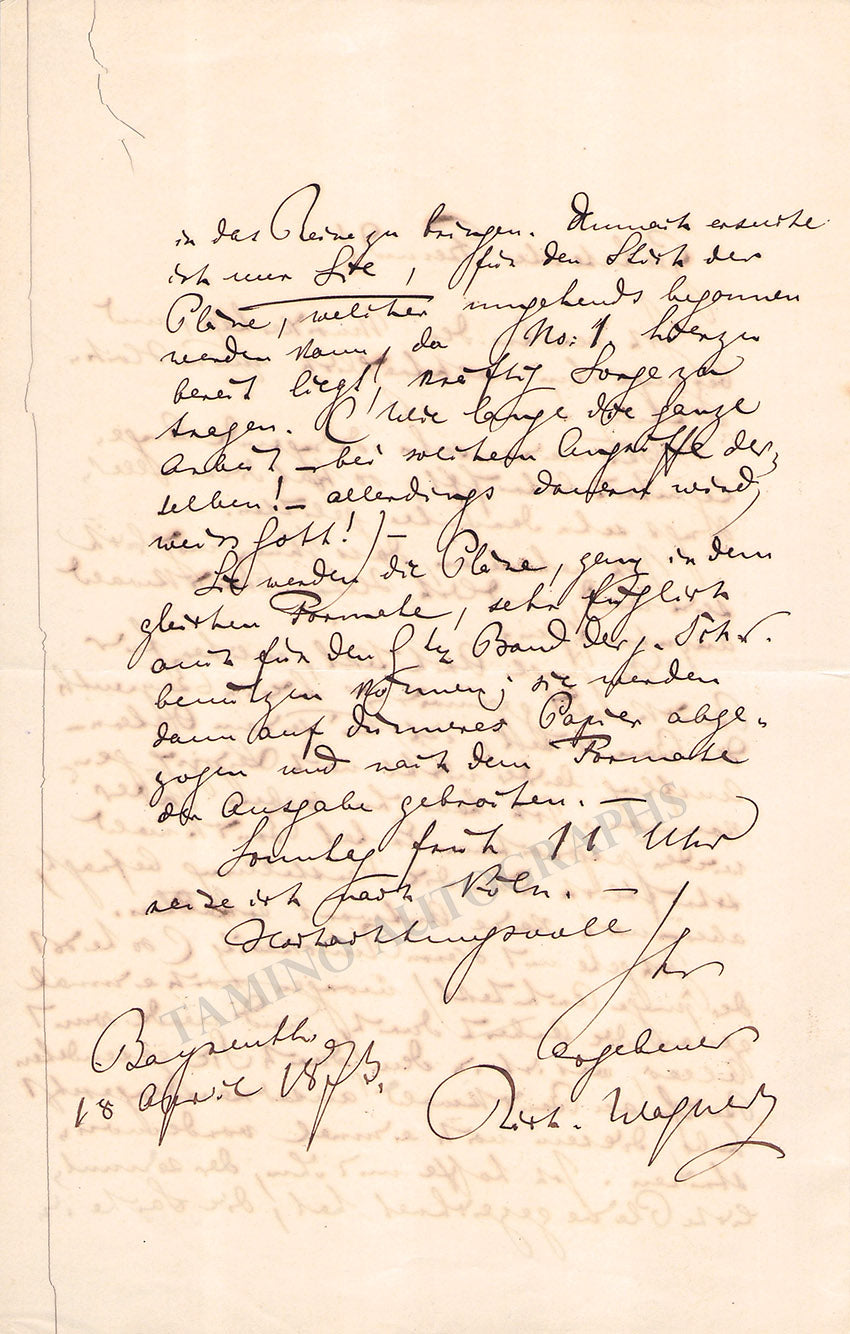 in das Reine zu bringen. Demnach ersuche
ich nun Sie, für den Stich der
Pläne, welcher umgehends begonnen
werden kann, da No: 1 hierzu
bereit liegt, kräftig Sorge zu
tragen. (Wie lange die ganze
Arbeit – bei solchem Angriffe der-
selben! – allerdings dauern wird,
weiss Gott!) –
Sie werden die Pläne, ganz in dem
gleichen Formate, sehr füglich
auch für den 9ten Band der g. Schr.
benutzen können; sie werden
dann auf dünneres Papier abge-
zogen und nach dem Formate
der Ausgabe gebrochen. –
Sonntag früh 11 Uhr
reise ich nach Köln. –
Hochachtungsvoll
Ihr
ergebener
Rich. Wagner
Bayreuth.
18 April 1873.
TAMINO AUTOGRAPHS